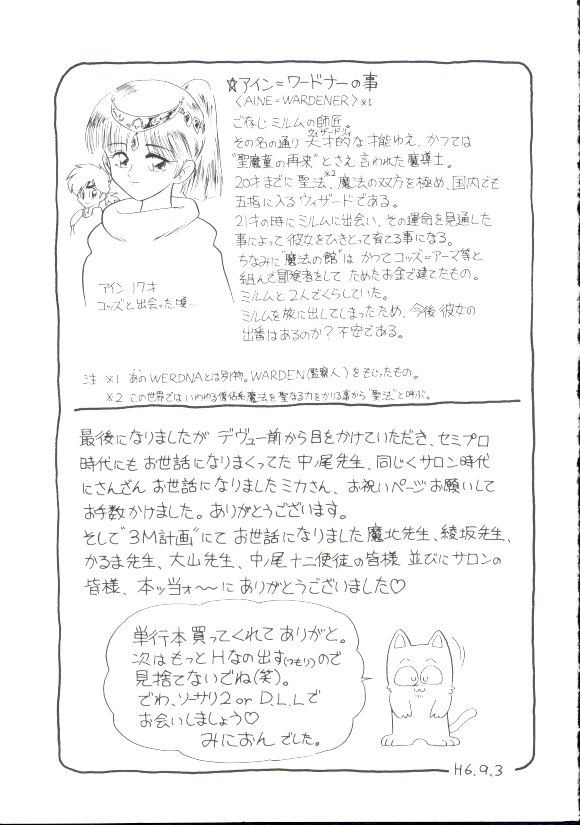 ☆アイン=ワードナーの事
〈AINE=WARDENER〉※1
ごなじミルムの師匠。
その名の通り天才的な才能ゆえ、かつては
"聖魔童の再来"とさえ言われた魔導士。
20才までに聖法※2、魔法の双方を極め、国内でも
五指に入るウィザードである。
21才の時にミルムに出会い、その運命を見通した
事によって彼女をひきとって育てる事になる。
ちなみに"魔法の館"はかつてコッズ=アーマ等と
組んで冒険者をしてためたお金で建てたもの。
ミルムと2人でくらしていた。
ミルムを旅に出してしまったため、今後彼女の
出番はあるのか?不安である。
アイン17才
コッズと出会った頃…
注 ※1 あのWERDNAとは別物。WARDEN(監察人)をもじったもの。
※2 この世界ではいわゆる僧侶系魔法を聖なる力をかりる事から"聖法"と呼ぶ。
最後になりましたがデヴュー前から目をかけていただき、セミプロ
時代にもお世話になりまくってた中ノ尾先生、同じくサロン時代
にさんざんお世話になりましたミカさん、お祝いページお願いして
お手数かけました。ありがとうございます。
そして"3M計画"にてお世話になりました魔北先生、綾坂先生、
かるま先生、大山先生、中ノ尾十二使徒の皆様並びにサロンの
皆様、本ッ当ォ〜〜にありがとうございました♡
単行本買ってくれてありがと。
次はもっとHなの出す(つもり)ので
見捨てないでね(笑)。
でわ、ソーサリ2 or D.L.Lで
お会いしましょう♡
みにおんでした。
H6.9.3